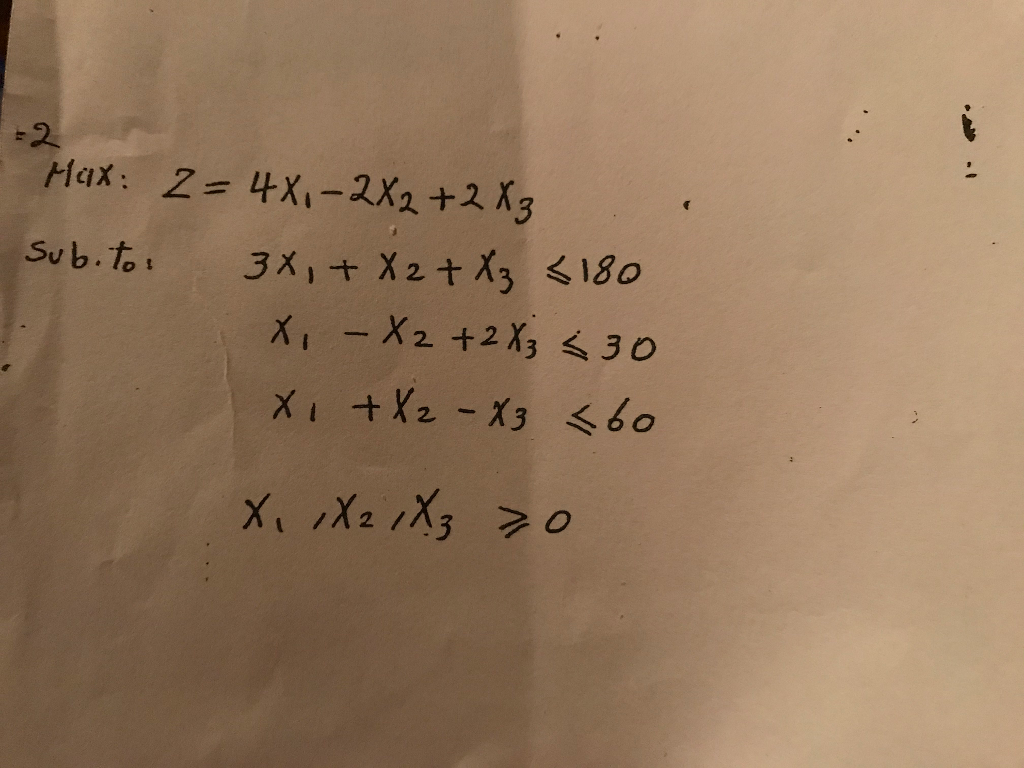 =2
Max: Z = 4X₁ - 2X₂ + 2X₃
Sub. to: 3X₁ + X₂ + X₃ ⩽ 180
X₁ - X₂ + 2X₃ ⩽ 30
X₁ + X₂ - X₃ ⩽ 60
X₁ , X₂ , X₃ ⩾ 0